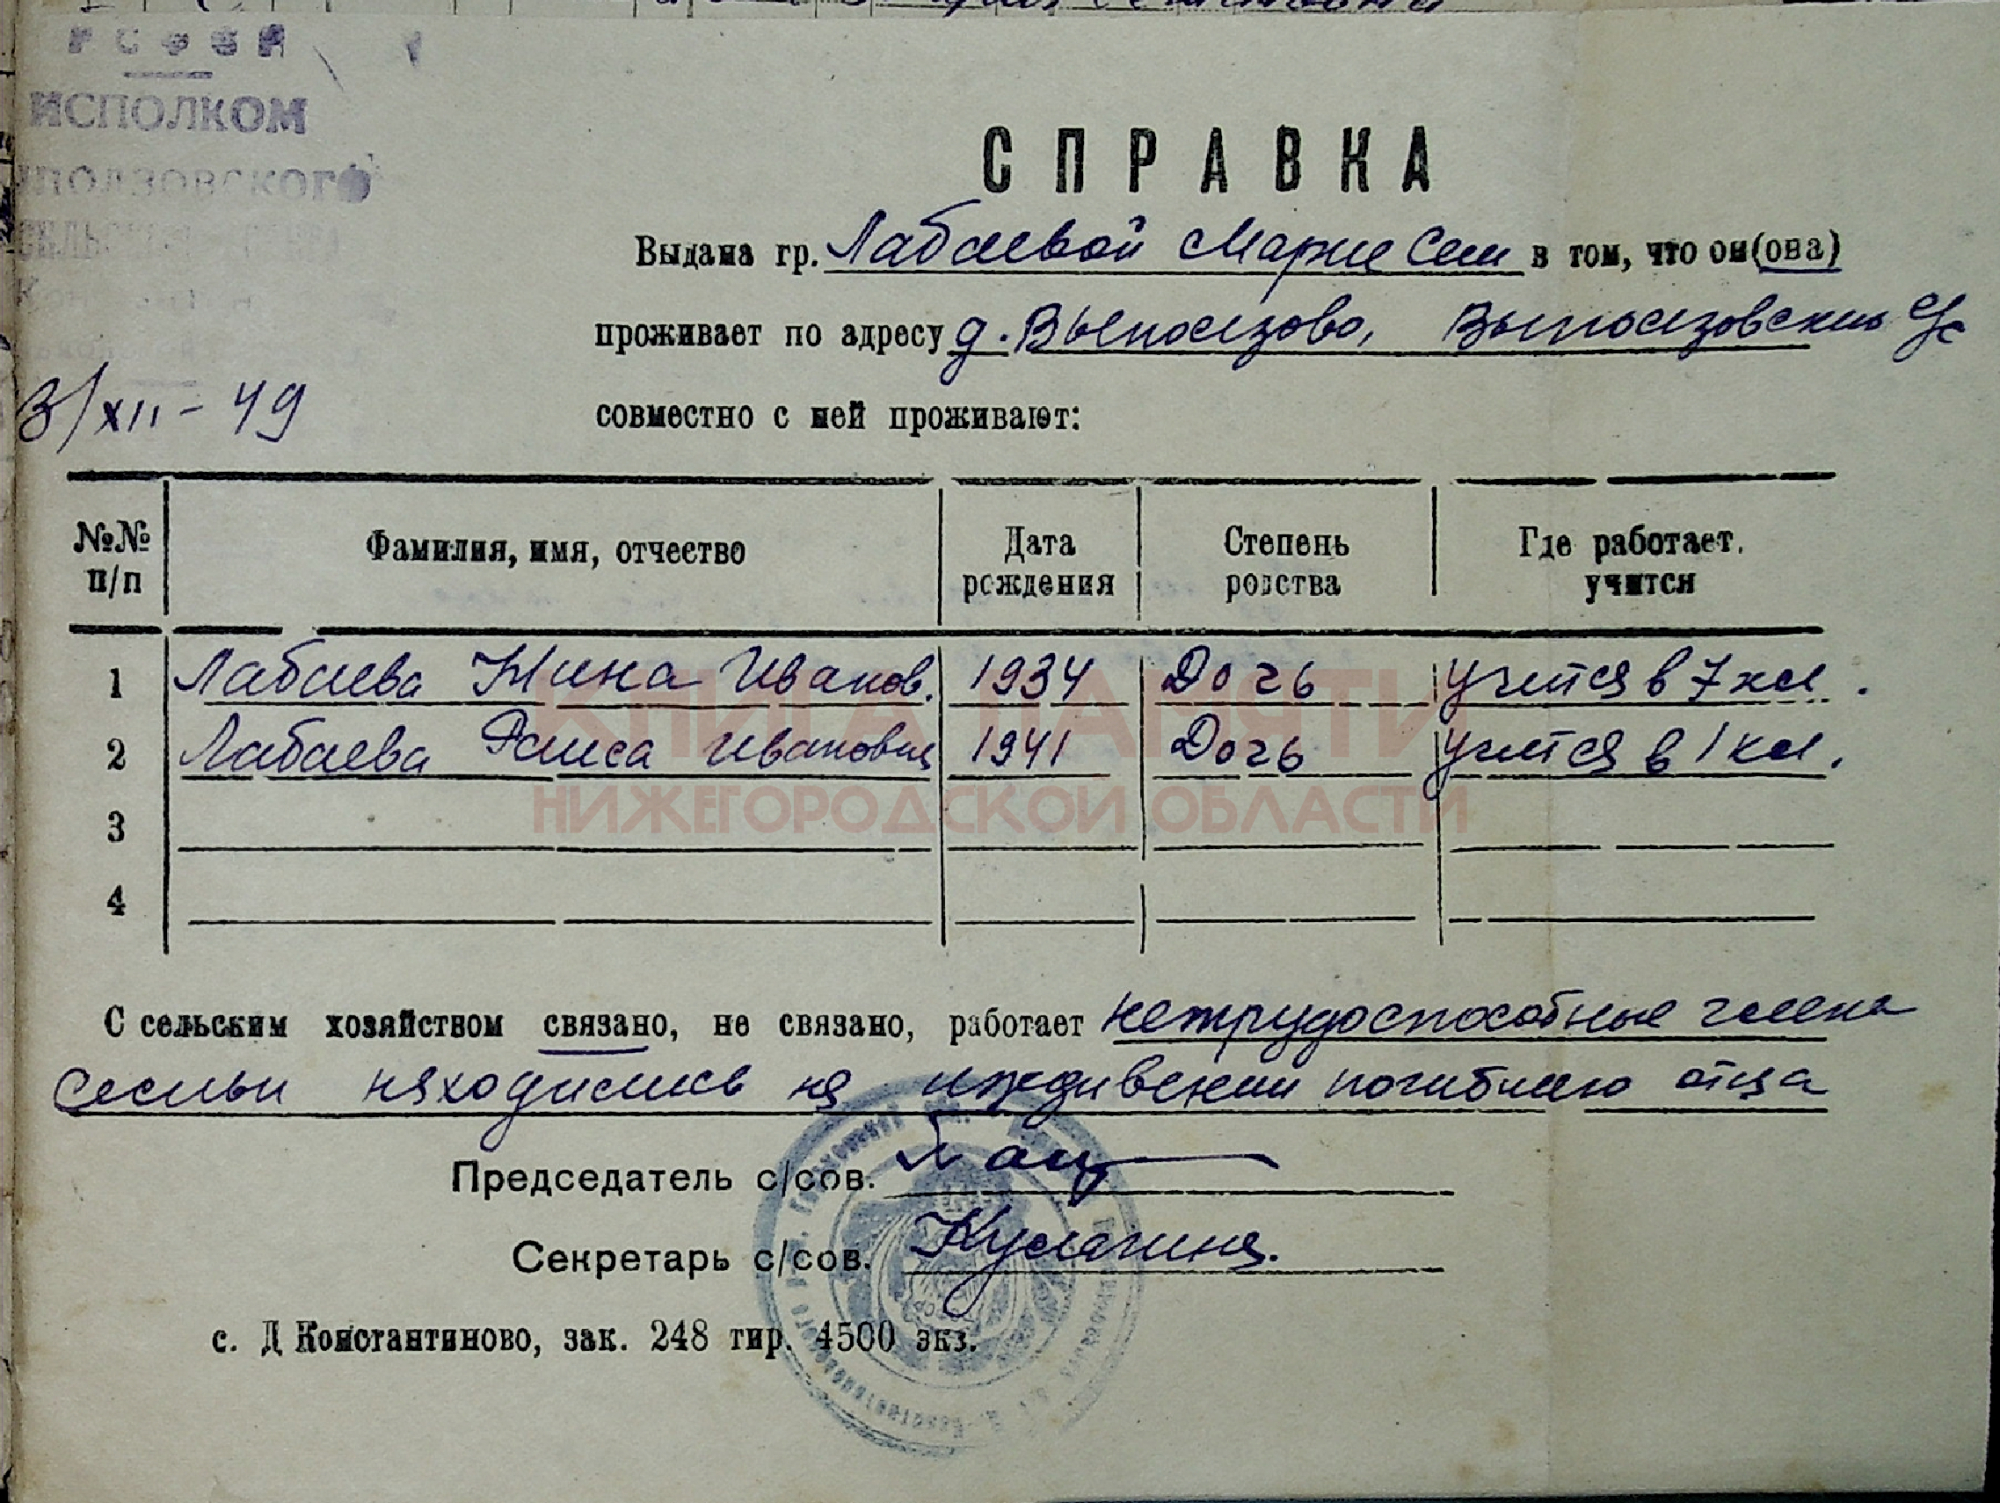 РСФСР
ИСПОЛКОМ
3/XII - 49
СПРАВКА
Выдана гр. Лабаевой Марие Сем в том, что он(она)
проживает по адресу д. Выползово, Выползовский с/с
совместно с ней проживают:
№№ п/п Фамилия, имя, отчество Дата рождения Степень родства Где работает, учится
1 Лабаева Нина Иванов. 1934 Дочь учится в 7 кл.
2 Лабаева Раиса Ивановна 1941 Дочь учится в 1 кл.
3
4
КНИГА ПАМЯТИ
НИЖЕГОРОДСКОЙ ОБЛАСТИ
С сельским хозяйством связано, не связано, работает нетрудоспособные члены
семьи находились на иждивении погибшего отца
Председатель с/сов.
Секретарь с/сов. Кулагина.
с. Д Константиново, зак. 248 тир. 4500 экз.